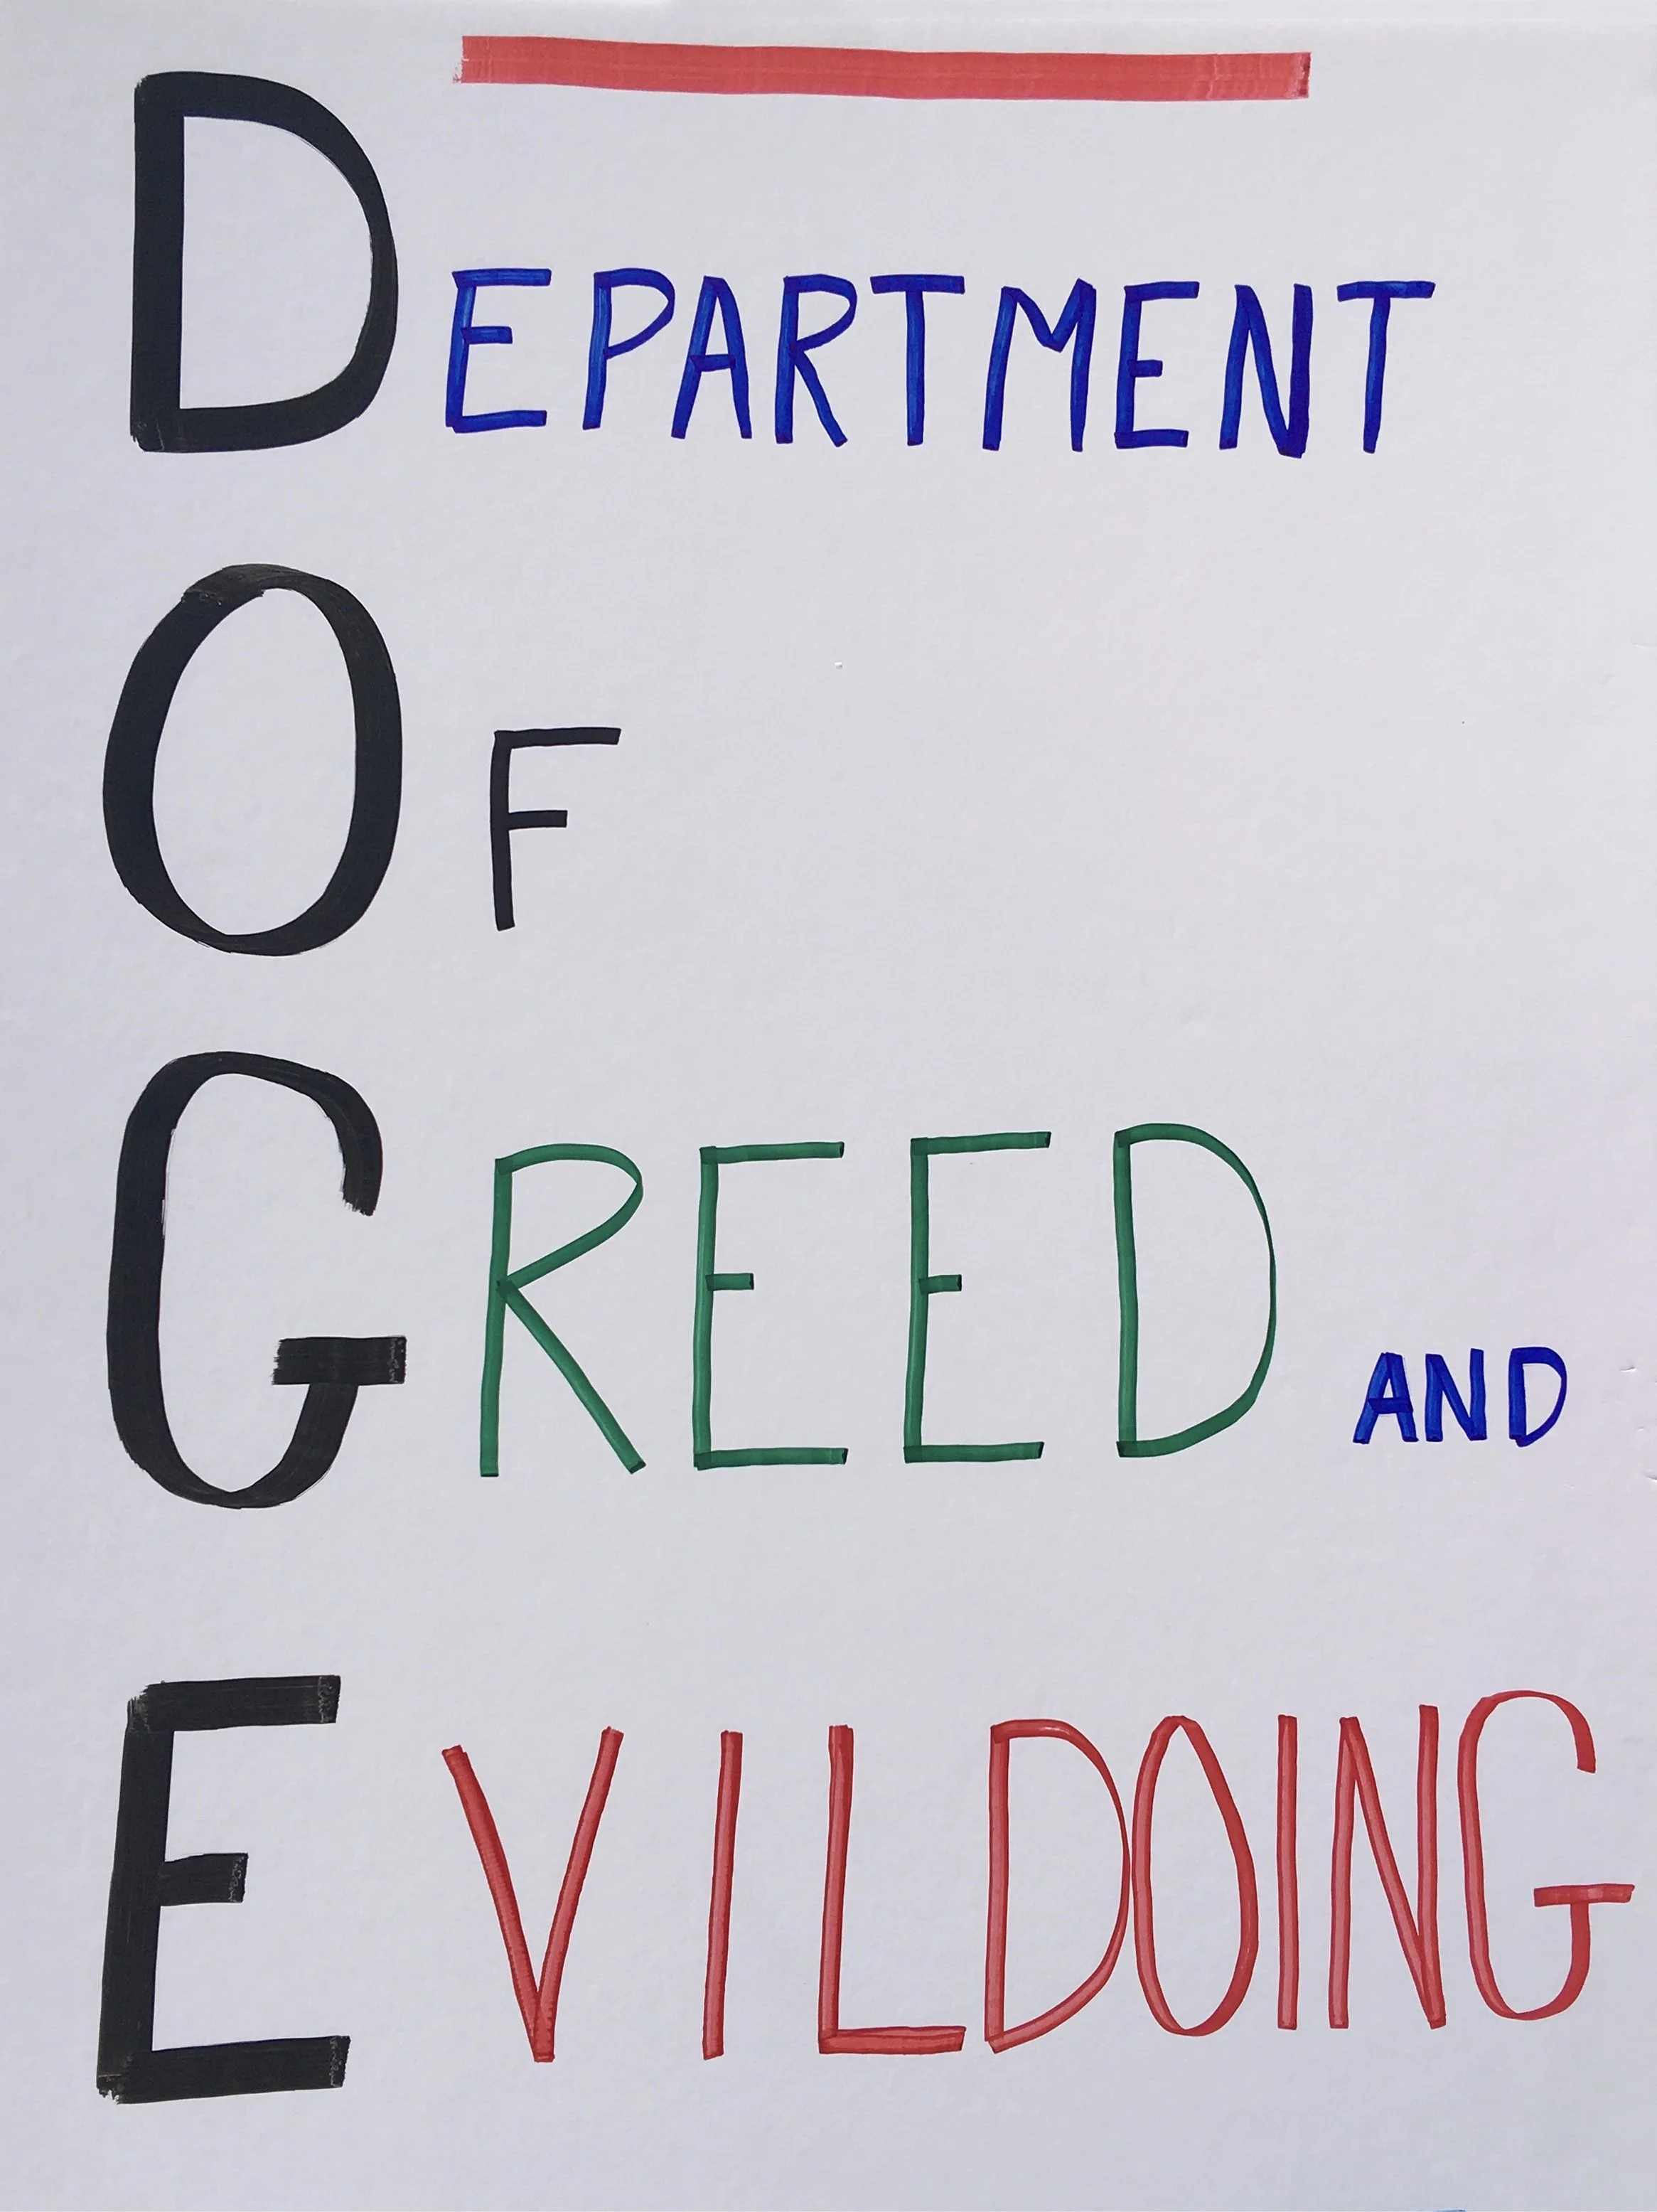 DEPARTMENT
OF
GREED AND
EVILDOING